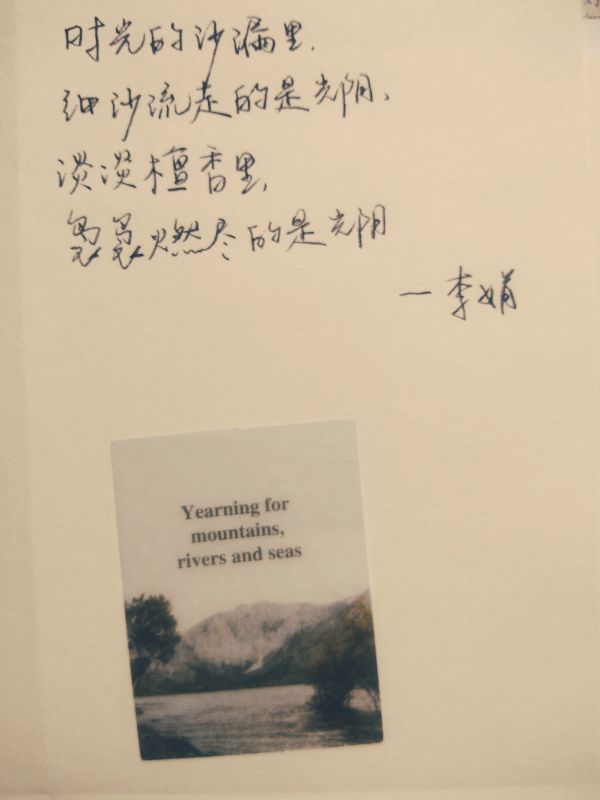 时光的沙漏里.
细沙流走的是光阴、
淡淡檀香里,
袅袅燃尽的是光阴
一李娟
Yearning for
mountains,
rivers and seas